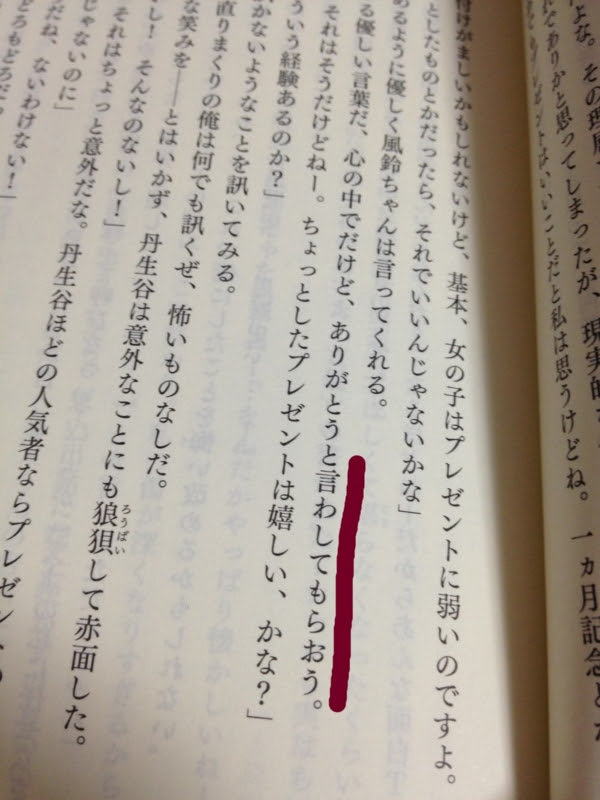 よな。その理屈、
てありかと思ってしまったが、現実的
プレゼントはいいことだと私は思うけどね。一ヵ月記念とか
付けがましいかもしれないけど、基本、女の子はプレゼントに弱いのですよ。
としたものとかだったら、それでいいんじゃないかな」
あるように優しく風鈴ちゃんは言ってくれる。
る優しい言葉だ、心の中でだけど、ありがとうと言わしてもらおう。
それはそうだけどねー。ちょっとしたプレゼントは嬉しい、かな?」
ういう経験あるのか?」
かないようなことを訊いてみる。
直りまくりの俺は何でも訊くぜ、怖いものなしだ。
な笑みを――とはいかず、丹生谷は意外なことにも狼狽(ろうばい)して赤面した。
し! そんなのないし!」
それはちょっと意外だな。丹生谷ほどの人気者ならプレゼント
じゃないのに」
だね、ないわけない!」
どろもどろだ